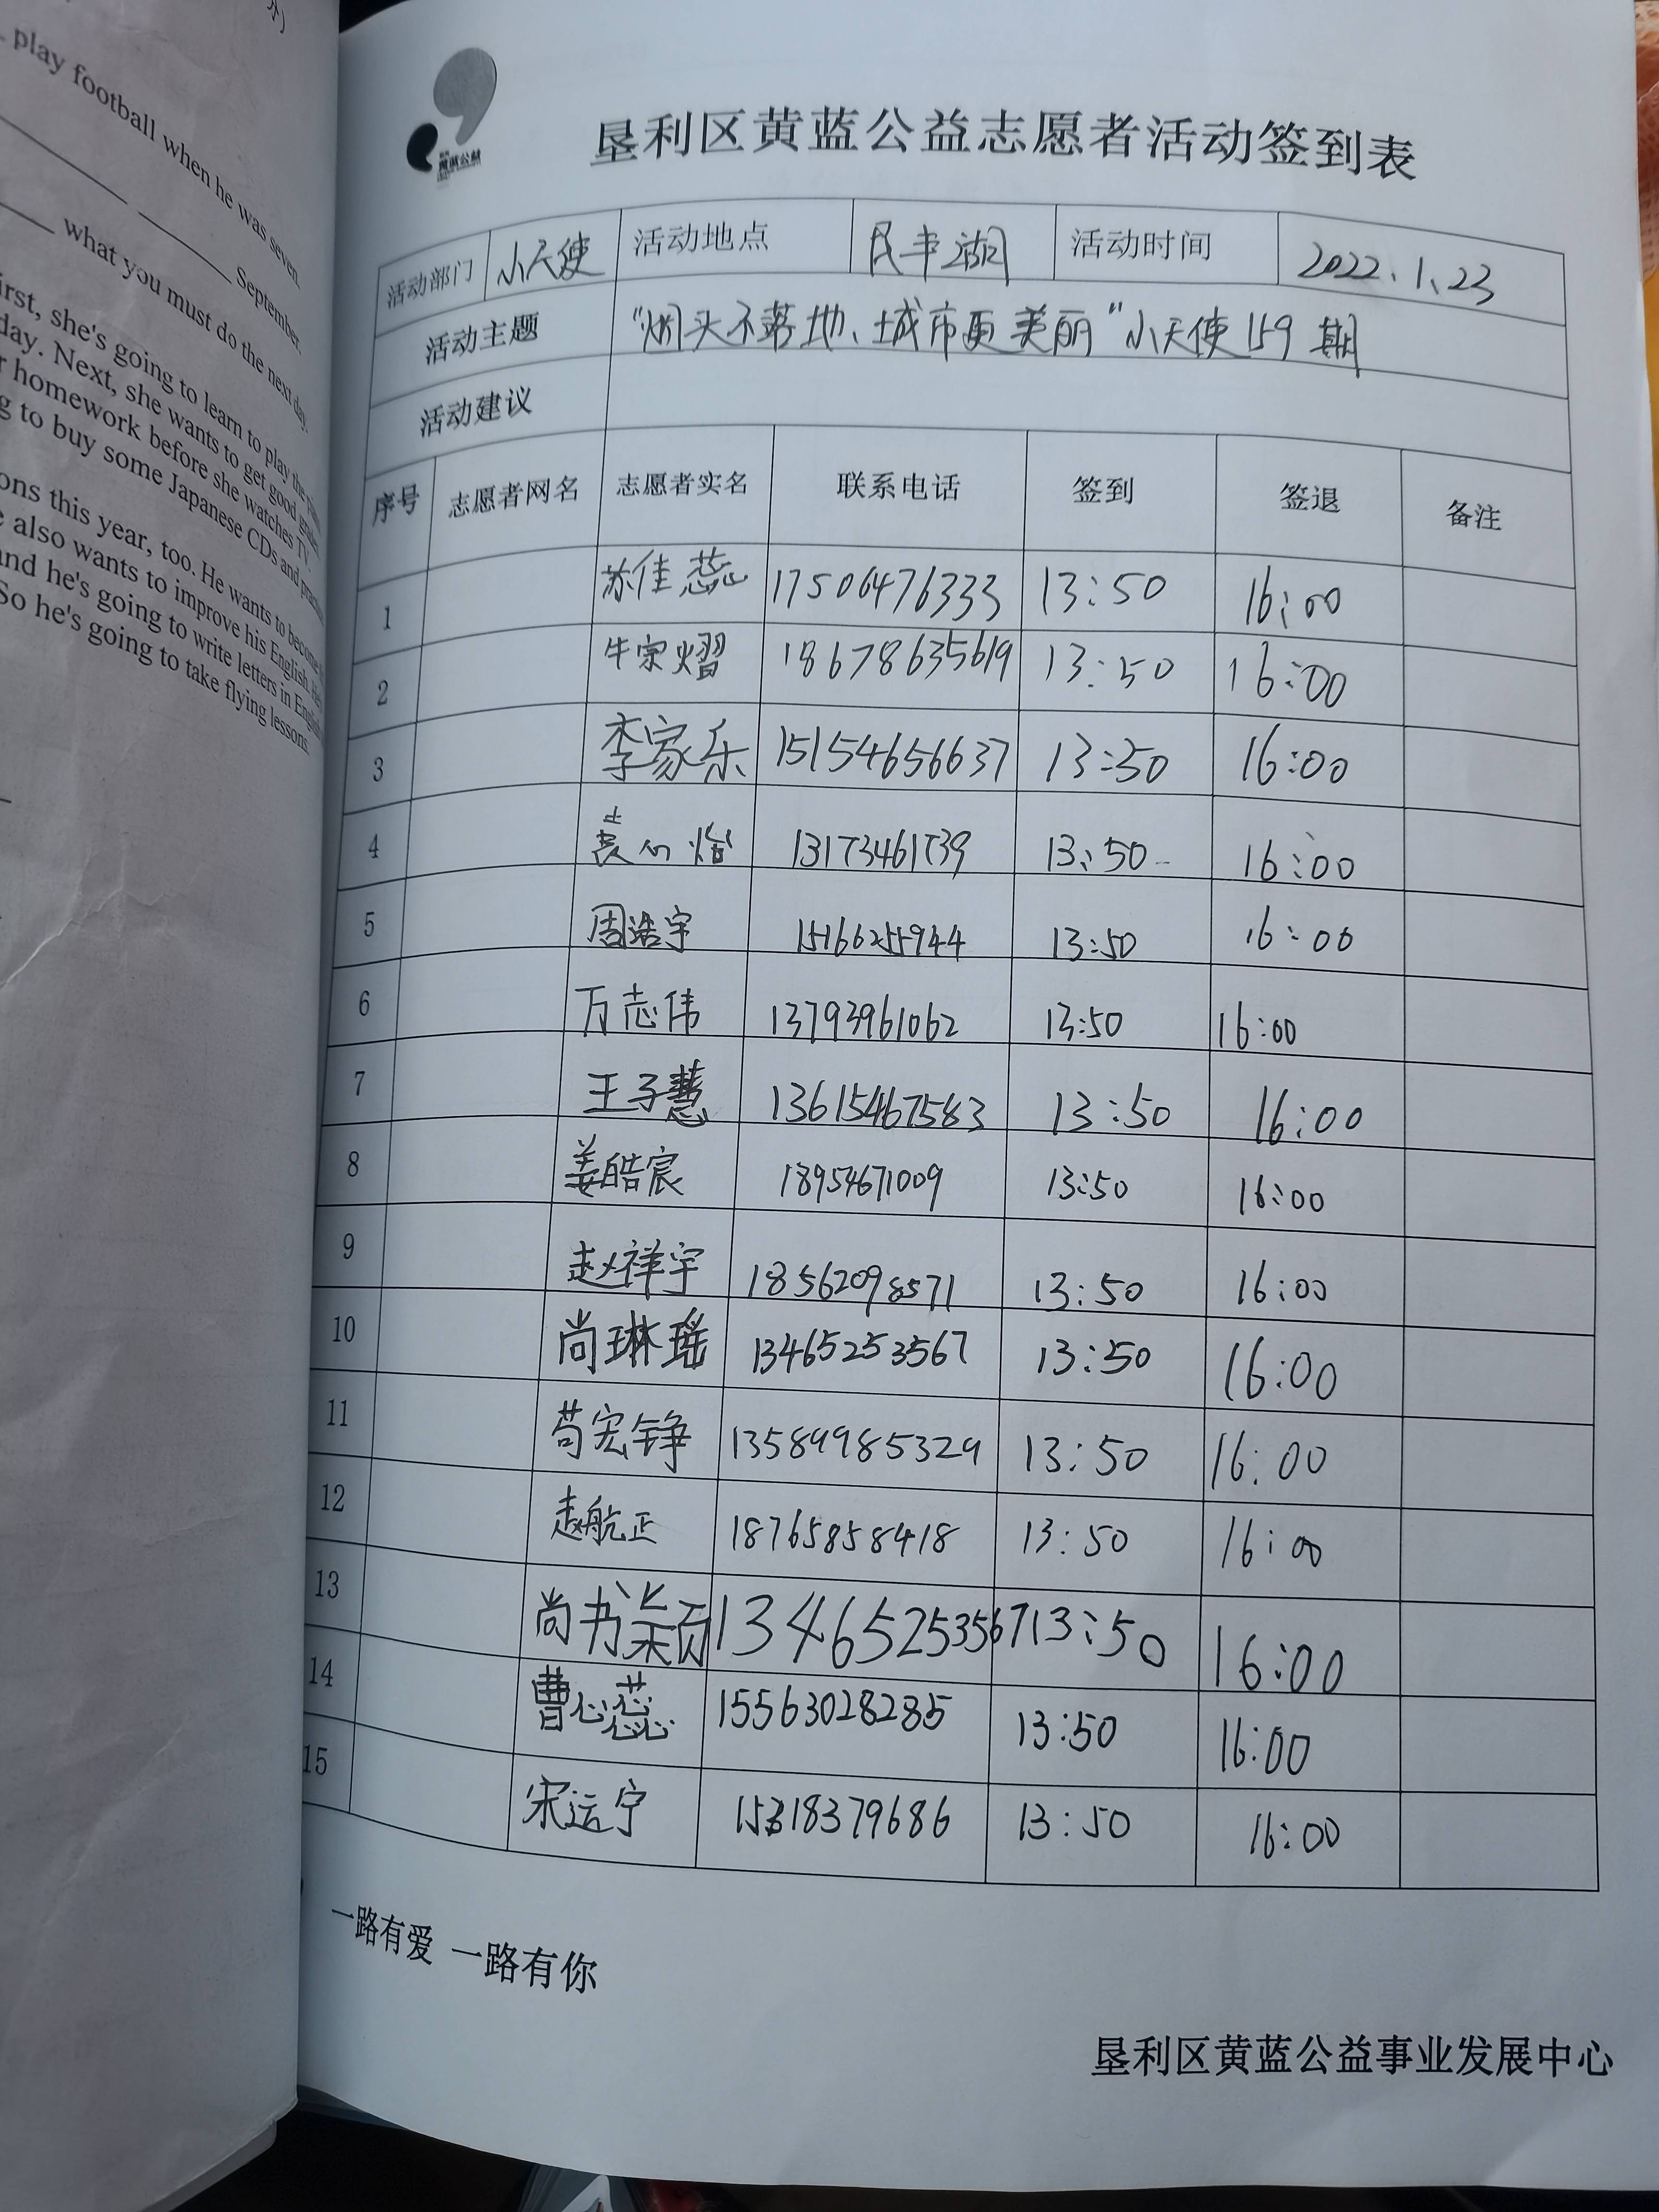 分）
play football when he was seven.
September.
what you must do the next day.
irst, she's going to learn to play the piano
day. Next, she wants to get good grades.
homework before she watches TV.
g to buy some Japanese CDs and
ons this year, too. He wants to become
also wants to improve his English. He
and he's going to write letters in English
So he's going to take flying lessons.
黄蓝公益
垦利区黄蓝公益志愿者活动签到表
活动部门 小天使 活动地点 民丰湖 活动时间 2022.1.23
活动主题 "烟头不落地、城市更美丽"小天使159期
活动建议
序号 志愿者网名 志愿者实名 联系电话 签到 签退 备注
1 苏佳蕊 17506476333 13:50 16:00
2 牛宗熠 18678635619 13:50 16:00
3 李家乐 15154656637 13:50 16:00
4 13173461739 13:50 16:00
5 周浩宇 15166255944 13:50 16:00
6 万志伟 13793961062 13:50 16:00
7 王子慧 13615467583 13:50 16:00
8 姜皓宸 18954671009 13:50 16:00
9 赵祥宇 18562098571 13:50 16:00
10 尚琳瑶 13465253567 13:50 16:00
11 苟宏铮 13589985329 13:50 16:00
12 赵航正 18765858418 13:50 16:00
13 尚书颖 13465253567 13:50 16:00
14 曹心蕊 15563028285 13:50 16:00
15 宋运宁 15318379686 13:50 16:00
一路有爱 一路有你
垦利区黄蓝公益事业发展中心